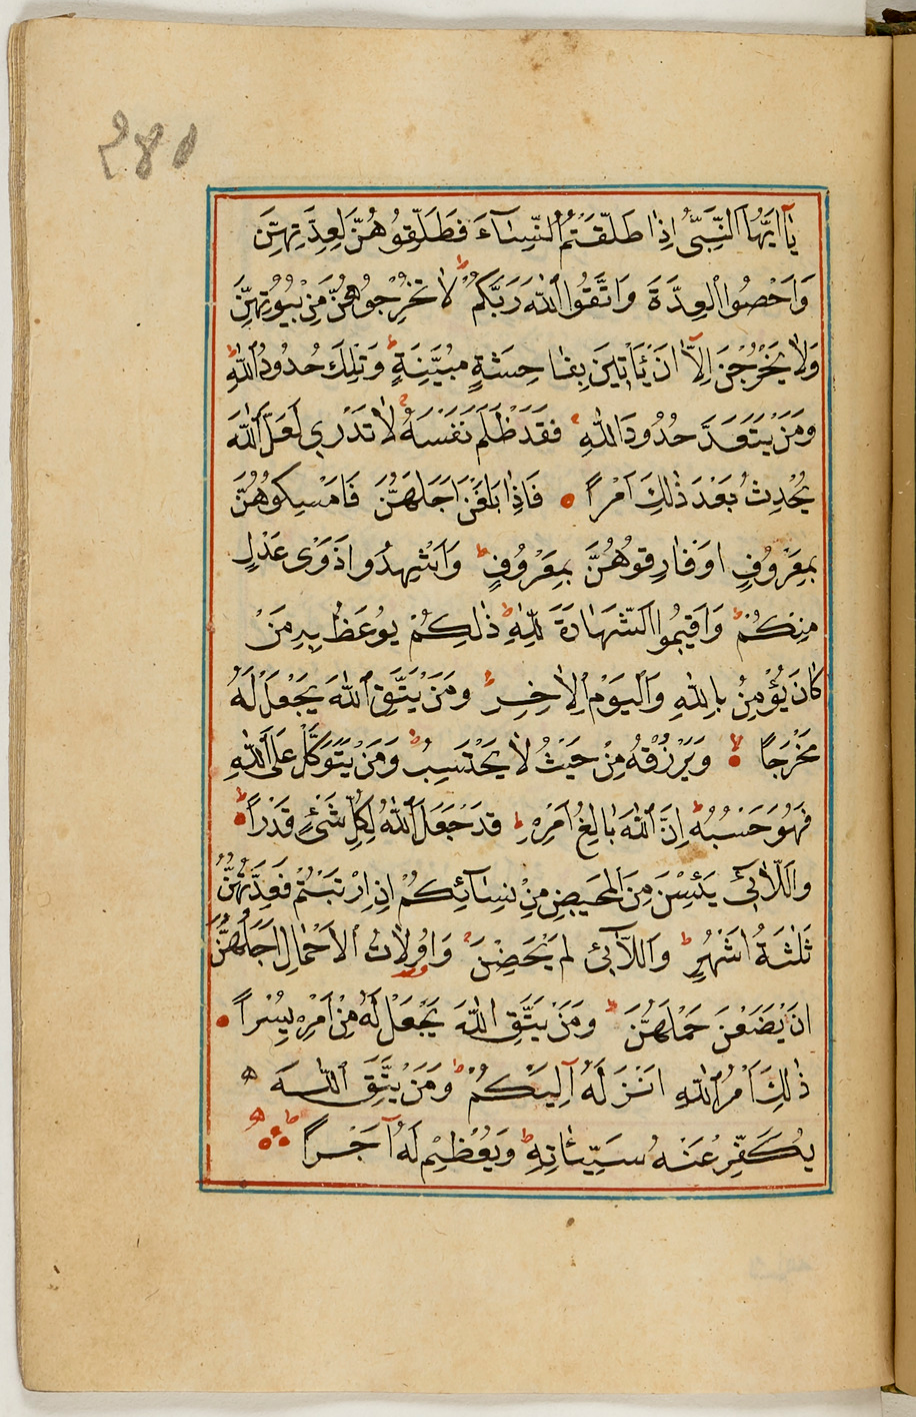 ٢٤٥
يَٓا اَيُّهَا النَّبِىُّ اِذَا طَلَّقْتُمُ النِّسَٓاءَ فَطَلِّقُوهُنَّ لِعِدَّتِهِنَّ
وَاَحْصُوا الْعِدَّةَ وَاتَّقُوا اللّٰهَ رَبَّكُمْ ط لَا تُخْرِجُوهُنَّ مِنْ بُيُوتِهِنَّ
وَلَا يَخْرُجْنَ اِلَّٓا اَنْ يَاْتِينَ بِفَاحِشَةٍ مُبَيِّنَةٍ ط وَتِلْكَ حُدُودُ اللّٰهِ ط
وَمَنْ يَتَعَدَّ حُدُودَ اللّٰهِ فَقَدْ ظَلَمَ نَفْسَهُ لَا تَدْرِى لَعَلَّ اللّٰهَ
يُحْدِثُ بَعْدَ ذٰلِكَ اَمْرًا فَاِذَا بَلَغْنَ اَجَلَهُنَّ فَاَمْسِكُوهُنَّ
بِمَعْرُوفٍ اَوْ فَارِقُوهُنَّ بِمَعْرُوفٍ ط وَاَشْهِدُوا ذَوَىْ عَدْلٍ
مِنْكُمْ ط وَاَقِيمُوا الشَّهَادَةَ لِلّٰهِ ط ذٰلِكُمْ يُوعَظُ بِهِ مَنْ
كَانَ يُؤْمِنُ بِاللّٰهِ وَالْيَوْمِ الْاٰخِرِ ط وَمَنْ يَتَّقِ اللّٰهَ يَجْعَلْ لَهُ
مَخْرَجًا لا وَيَرْزُقْهُ مِنْ حَيْثُ لَا يَحْتَسِبُ ط وَمَنْ يَتَوَكَّلْ عَلَى اللّٰهِ
فَهُوَ حَسْبُهُ ط اِنَّ اللّٰهَ بَالِغُ اَمْرِهِ ط قَدْ جَعَلَ اللّٰهُ لِكُلِّ شَىْءٍ قَدْرًا ط
وَاللَّٓائِى يَئِسْنَ مِنَ الْمَحِيضِ مِنْ نِسَائِكُمْ اِنِ ارْتَبْتُمْ فَعِدَّتُهُنَّ
ثَلٰثَةُ اَشْهُرٍ ط وَاللَّٓائِى لَمْ يَحِضْنَ وَاُولَاتُ الْاَحْمَالِ اَجَلُهُنَّ
اَنْ يَضَعْنَ حَمْلَهُنَّ ط وَمَنْ يَتَّقِ اللّٰهَ يَجْعَلْ لَهُ مِنْ اَمْرِهِ يُسْرًا
ذٰلِكَ اَمْرُ اللّٰهِ اَنْزَلَهُٓ اِلَيْكُمْ ط وَمَنْ يَتَّقِ اللّٰهَ ه
يُكَفِّرْ عَنْهُ سَيِّئَاتِهِ ط وَيُعْظِمْ لَهُٓ اَجْرًا ط